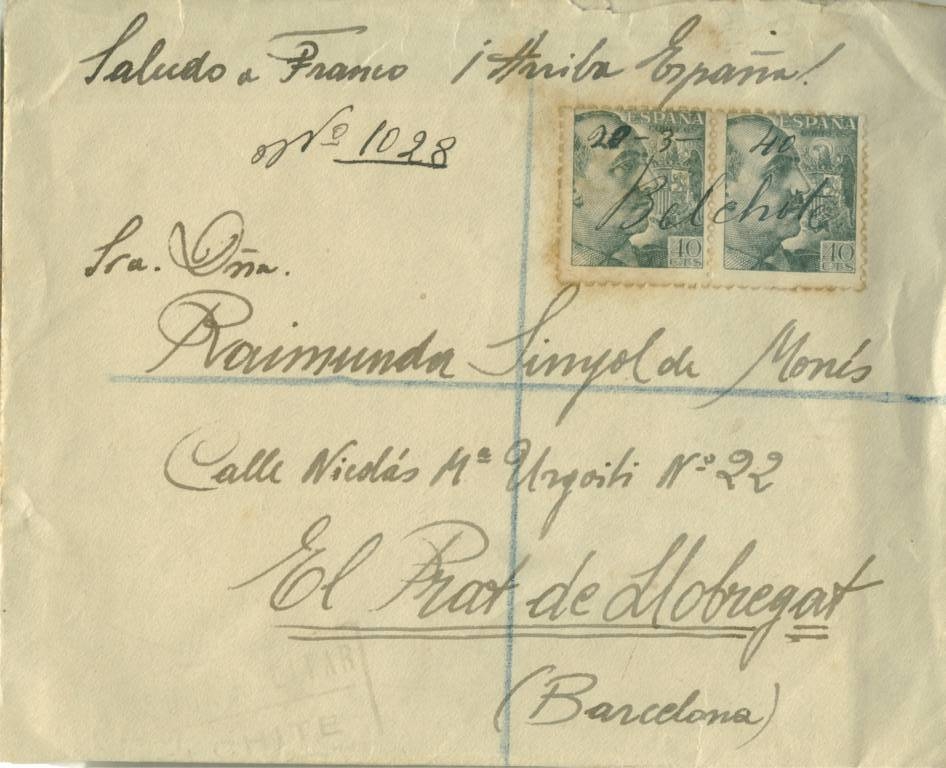 Saludo a Franco ¡Arriba España!
Nº 1028
ESPAÑA ESPAÑA
28-3-40
Belchite
40 CTS 40 CTS
Sra. Dña.
Raimunda Sinyol de Monés
Calle Nicolás Mª Urgoiti Nº 22
El Prat de Llobregat
(Barcelona)
CHITE